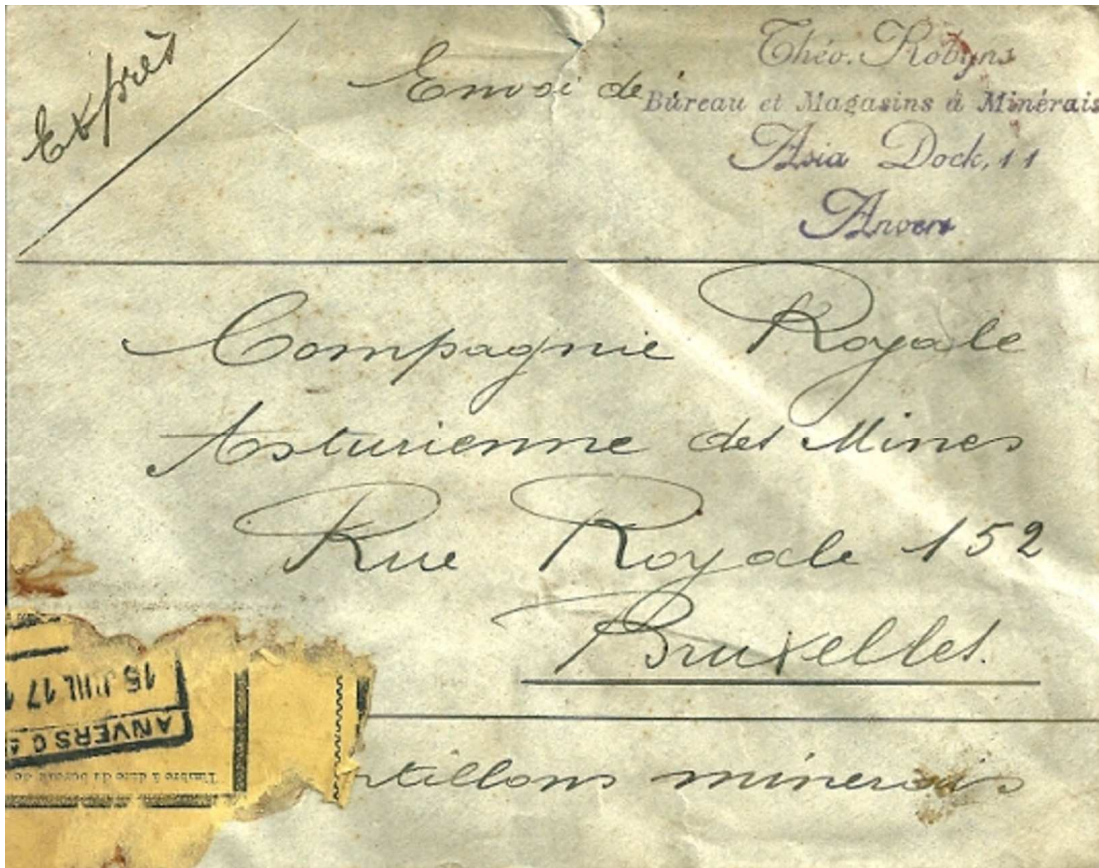 Exprès
Envoi de
Théo. Robyns
Bureau et Magasins à Minérais
Asia Dock, 11
Anvers
Compagnie Royale
Asturienne des Mines
Rue Royale 152
Bruxelles.
ntillons minerais
15 JUIL 17
ANVERS
Timbre à date du bureau de